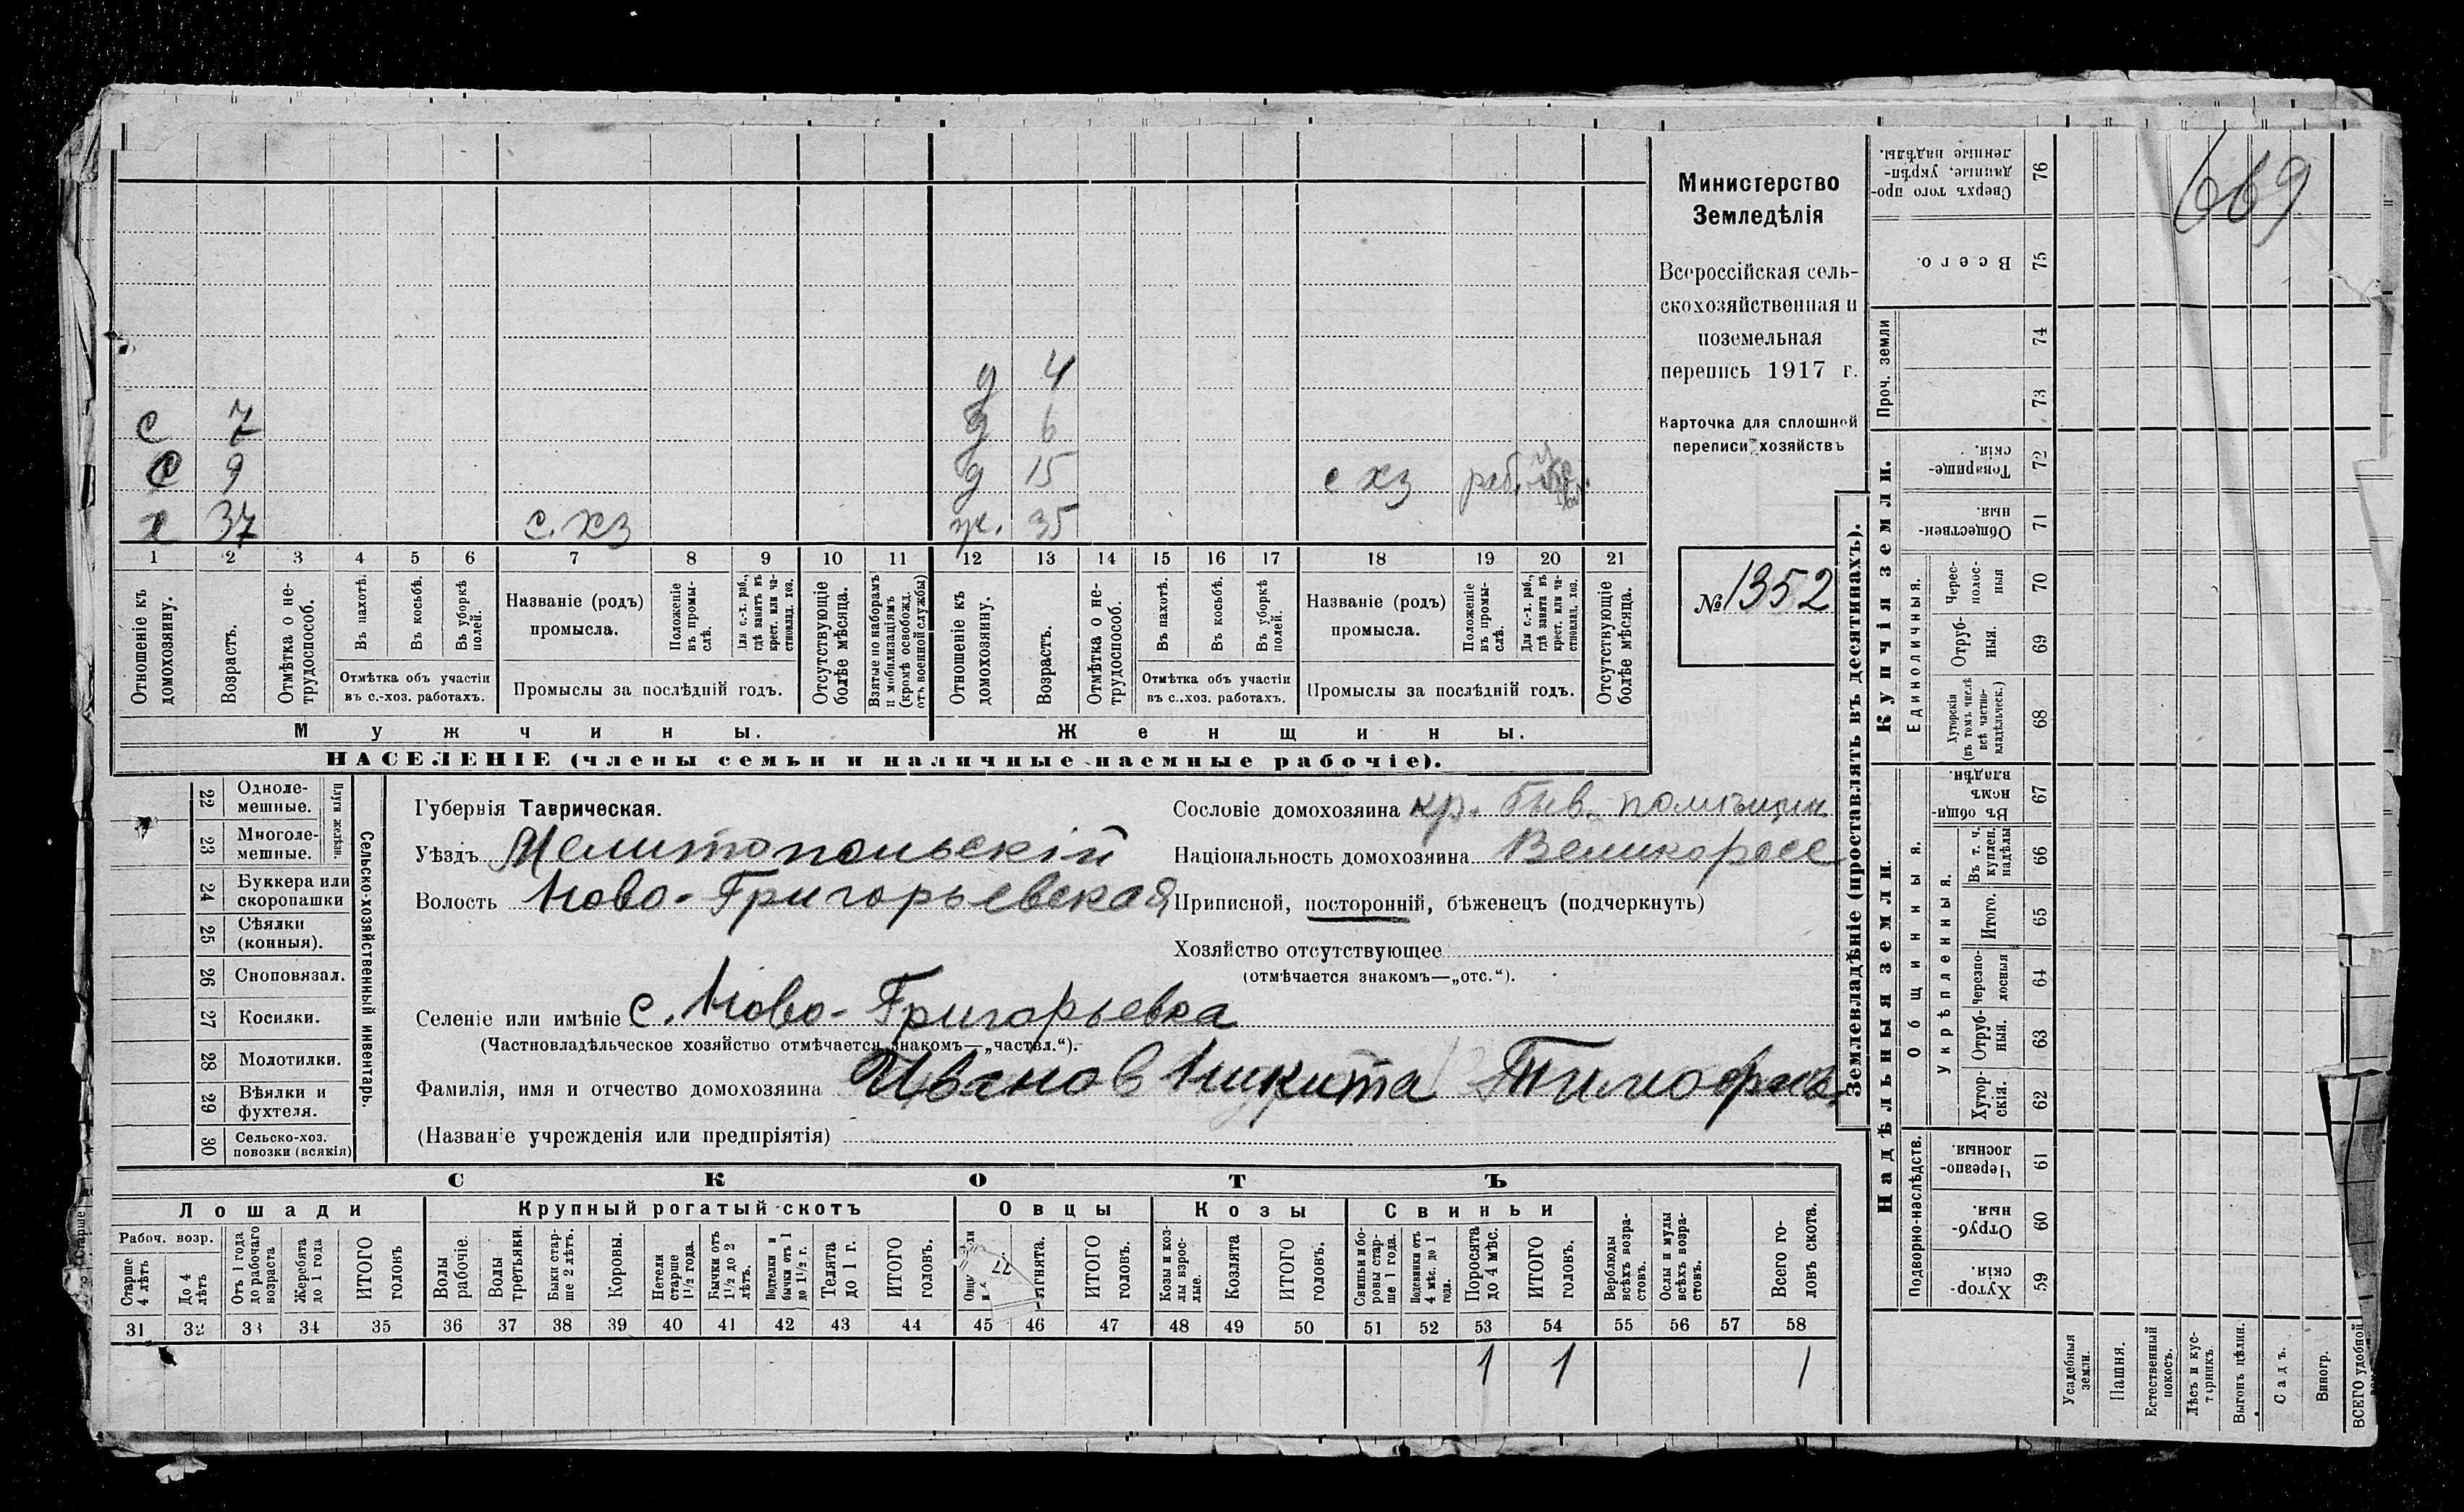 669
Министерство
Земледѣлія
Всероссійская сель-
скохозяйственная и
поземельная
перепись 1917 г.
Карточка для сплошной
переписи хозяйствъ
№ 1352
д 4
с 7 д 6
с 9 д 15 с хз раб.
х 37 с. хз ж. 35
1 2 3 4 5 6 7 8 9 10 11 12 13 14 15 16 17 18 19 20 21
Отношеніе къ домохозяину.
Возрастъ.
Отмѣтка о не-трудоспособ.
Въ пахотѣ.
Въ косьбѣ.
Въ уборкѣ полей.
Отмѣтка объ участіи
въ с.-хоз. работахъ.
Названіе (родъ)
промысла.
Положеніе въ промы-слѣ.
Для с.-х. раб., гдѣ занятъ въ крест. или ча-стновлад. хоз.
Промыслы за послѣдній годъ.
Отсутствующіе болѣе мѣсяца.
Взятые по наборамъ и мобилизаціямъ (кромѣ освобожд. отъ военной службы)
Отношеніе къ домохозяину.
Возрастъ.
Отмѣтка о не-трудоспособ.
Въ пахотѣ.
Въ косьбѣ.
Въ уборкѣ полей.
Отмѣтка объ участіи
въ с..хоз. работахъ.
Названіе (родъ)
промысла.
Положеніе въ промы-слѣ.
Для с.-х. раб., гдѣ занята въ крест. или ча-стновлад. хоз.
Промыслы за послѣдній годъ.
Отсутствующіе болѣе мѣсяца.
Мужчины. Женщины.
НАСЕЛЕНІЕ (члены семьи и наличные наемные рабочіе).
22 Одноле-мешные.
23 Многоле-мешные.
Плуги желѣзн.
24 Буккера или скоропашки
25 Сѣялки (конныя).
26 Сноповязал.
27 Косилки.
28 Молотилки.
29 Вѣялки и фухтеля.
30 Сельско-хоз. повозки (всякія)
Сельско-хозяйственный инвентарь.
Губернія Таврическая.
Уѣздъ Мелитопольскій
Волость Ново-Григорьевская
Селеніе или имѣніе с. Ново-Григорьевка
(Частновладѣльческое хозяйство отмѣчается знакомъ—„частвл.“).
Фамилія, имя и отчество домохозяина Иванов Никита Тимофѣев.
(Названіе учрежденія или предпріятія)
Сословіе домохозяина кр. быв. помѣщич
Національность домохозяина Великоросс
Приписной, посторонній, бѣженецъ (подчеркнуть)
Хозяйство отсутствующее
(отмѣчается знакомъ—„отс.“).
СКОТЪ
Лошади Крупный рогатый скотъ Овцы Козы Свиньи
Рабоч. возр.
Старше 4 лѣтъ
До 4 лѣтъ
Отъ 1 года до рабочаго возраста
Жеребята до 1 года
ИТОГО головъ
Волы рабочіе.
Волы третьяки.
Быки стар-ше 2 лѣтъ.
Коровы.
Нетели старше 1½ года.
Бычки отъ 1½ до 2 лѣтъ.
Подтелки и бычки отъ 1 до 1½ г.
Телята до 1 г.
ИТОГО головъ.
Ягнята.
ИТОГО головъ.
Козы и коз-лы взрос-лые.
Козлята
ИТОГО головъ.
Свиньи и бо-ровы стар-ше 1 года.
Подсвинки отъ 4 мѣс. до 1 года.
Поросята до 4 мѣс.
ИТОГО головъ.
Верблюды всѣхъ возра-стовъ.
Ослы и мулы всѣхъ возра-стовъ.
Всего го-ловъ скота.
31 32 33 34 35 36 37 38 39 40 41 42 43 44 45 46 47 48 49 50 51 52 53 54 55 56 57 58
1 1 1
77
Старше
Землевладѣніе (проставлять въ десятинахъ).
Купчія земли.
Сверхъ того про-данные, укрѣп-ленные надѣлы. 76
Всего. 75
Проч. земли 74
73
Товарище-скія. 72
Обществен-ныя. 71
Единоличныя.
Черес-полос-ныя 70
Отруб-ныя. 69
Хуторскія (въ томъ числѣ всѣ частно-владѣльческ.) 68
Надѣльныя земли.
Общинныя.
Въ общи-номъ владѣн. 67
Укрѣпленныя.
Въ т. ч. куплен. надѣлы 66
Итого. 65
черезпо-лосныя 64
Отруб-ныя. 63
Хутор-скія. 62
Подворно-наслѣдств.
Черезпо-лосныя. 61
Отруб-ныя. 60
Хутор-скія. 59
Усадебныя земли.
Пашня.
Естественный покосъ.
Лѣсъ и кус-тарникъ.
Выгонъ цѣлин.
Садъ.
Виногр.
ВСЕГО удобной